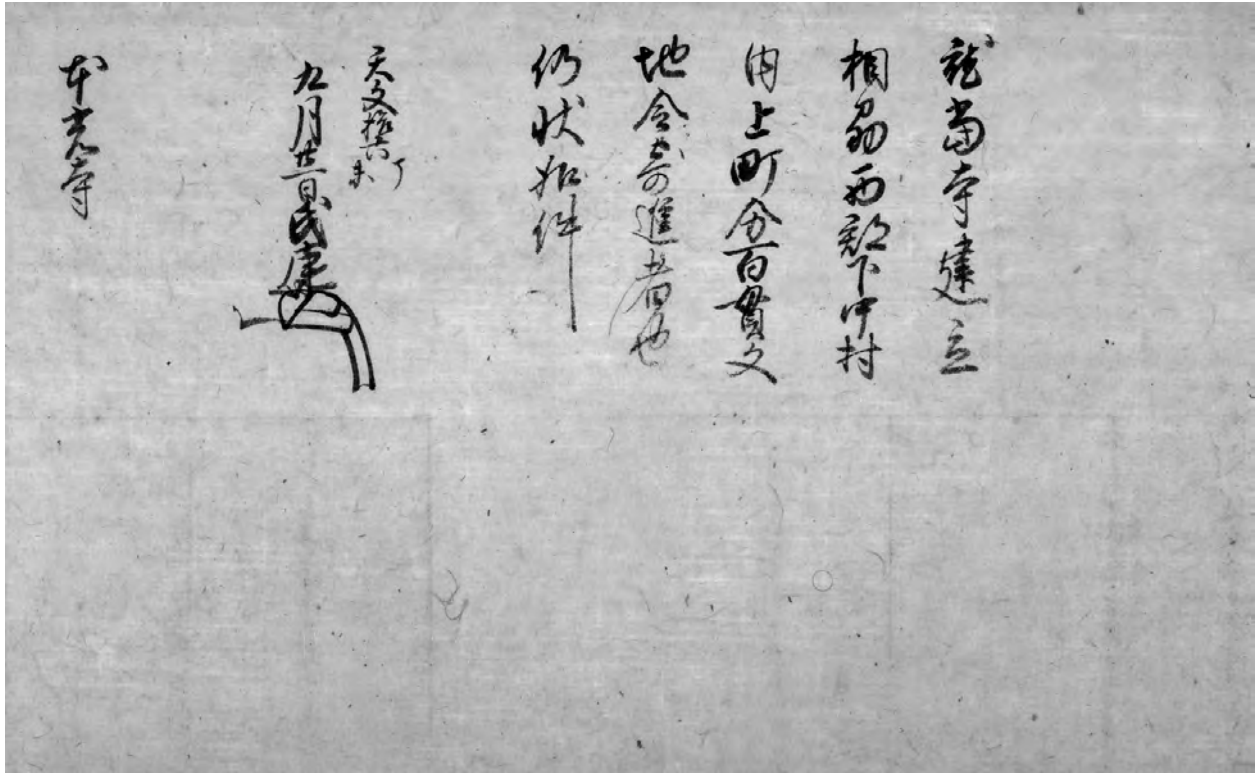 就当寺建立
相州西郡下中村
内上町分百貫文
地令寄進者也
仍状如件
天文拾六丁未
九月廿一日氏康
本光寺